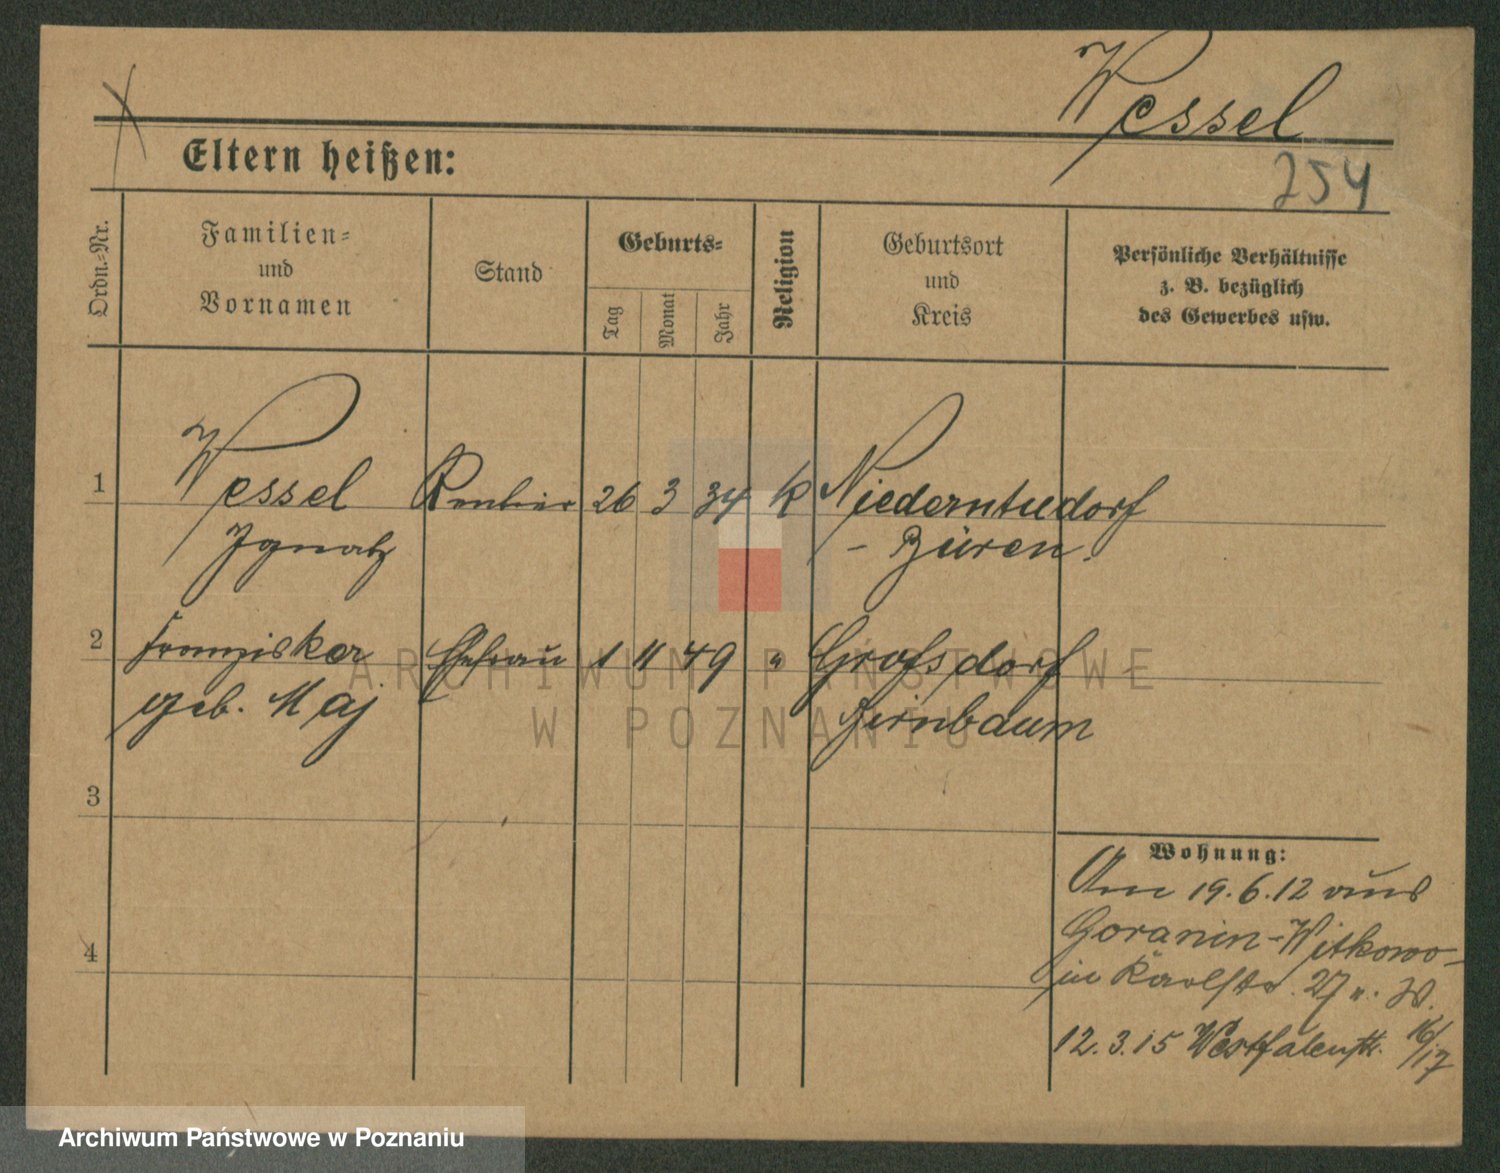 Wessel
Eltern heißen:
254
Ordn.-Nr.
Familien-
und
Vornamen
Stand
Geburts-
Tag
Monat
Jahr
Religion
Geburtsort
und
Kreis
Persönliche Verhältnisse
z. B. bezüglich
des Gewerbes usw.
1 Wessel Rentier 26 3 34 k Niederntudorf
Ignatz - Büren.
2 Franziska Ehefrau 1 11 49 " Grofsdorf
geb. Maj Birnbaum
3
4
Wohnung:
Am 19.6.12 aus
Goranin-Witkowo
in Karlstr. 27 n. W.
12.3.15 Westfalenstr. 16/17
ARCHIWUM PAŃSTWOWE
W POZNANIU
Archiwum Państwowe w Poznaniu